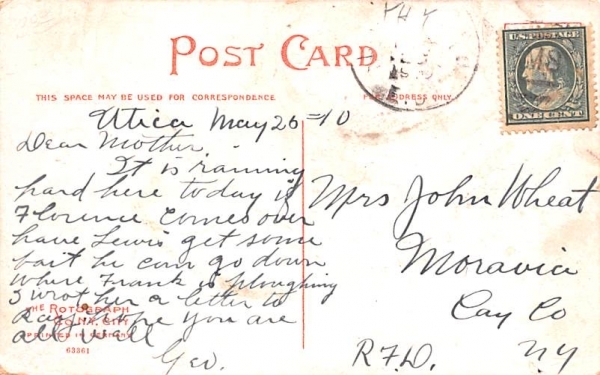 POST CARD
THIS SPACE MAY BE USED FOR CORRESPONDENCE
FOR ADDRESS ONLY.
U.S. POSTAGE
ONE CENT
Utica May 26 - 10
Dear Mother,
It is raining
hard here today if
Florence comes over
have Lewis get some
bait he can go down
where Frank is ploughing
I wrote her a letter to
day hope you are
all well
Geo.
THE ROTOGRAPH
CO. N.Y. CITY
PRINTED IN GERMANY
63361
Mrs John Wheat
Moravia
Cay Co
R.F.D. NY